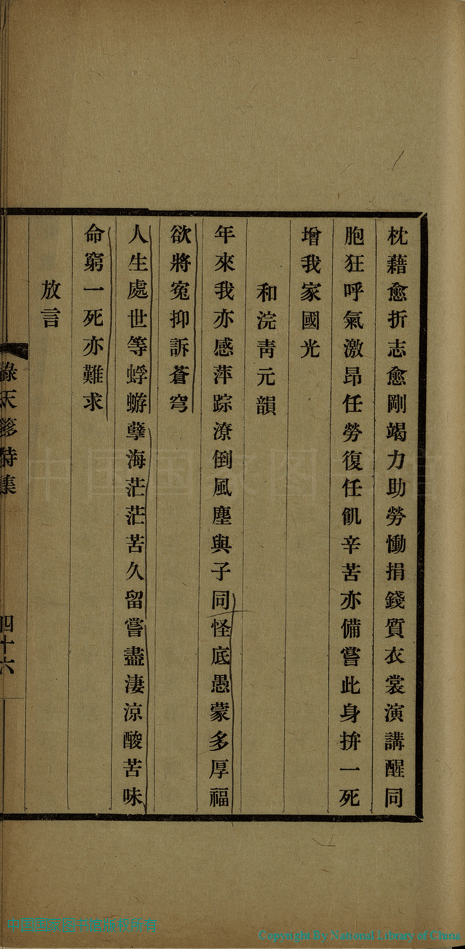 枕藉愈折志愈剛竭力助勞慟捐錢質衣裳演講醒同
胞狂呼氣激昂任勞復任飢辛苦亦備嘗此身拚一死
增我家國光
和浣靑元韻
年來我亦感萍踪潦倒風塵與子同怪底愚蒙多厚福
欲將寃抑訴蒼穹
人生處世等蜉蝣孽海茫茫苦久留嘗盡淒涼酸苦味
命窮一死亦難求
放言
四十六
Copyright By National Library of China